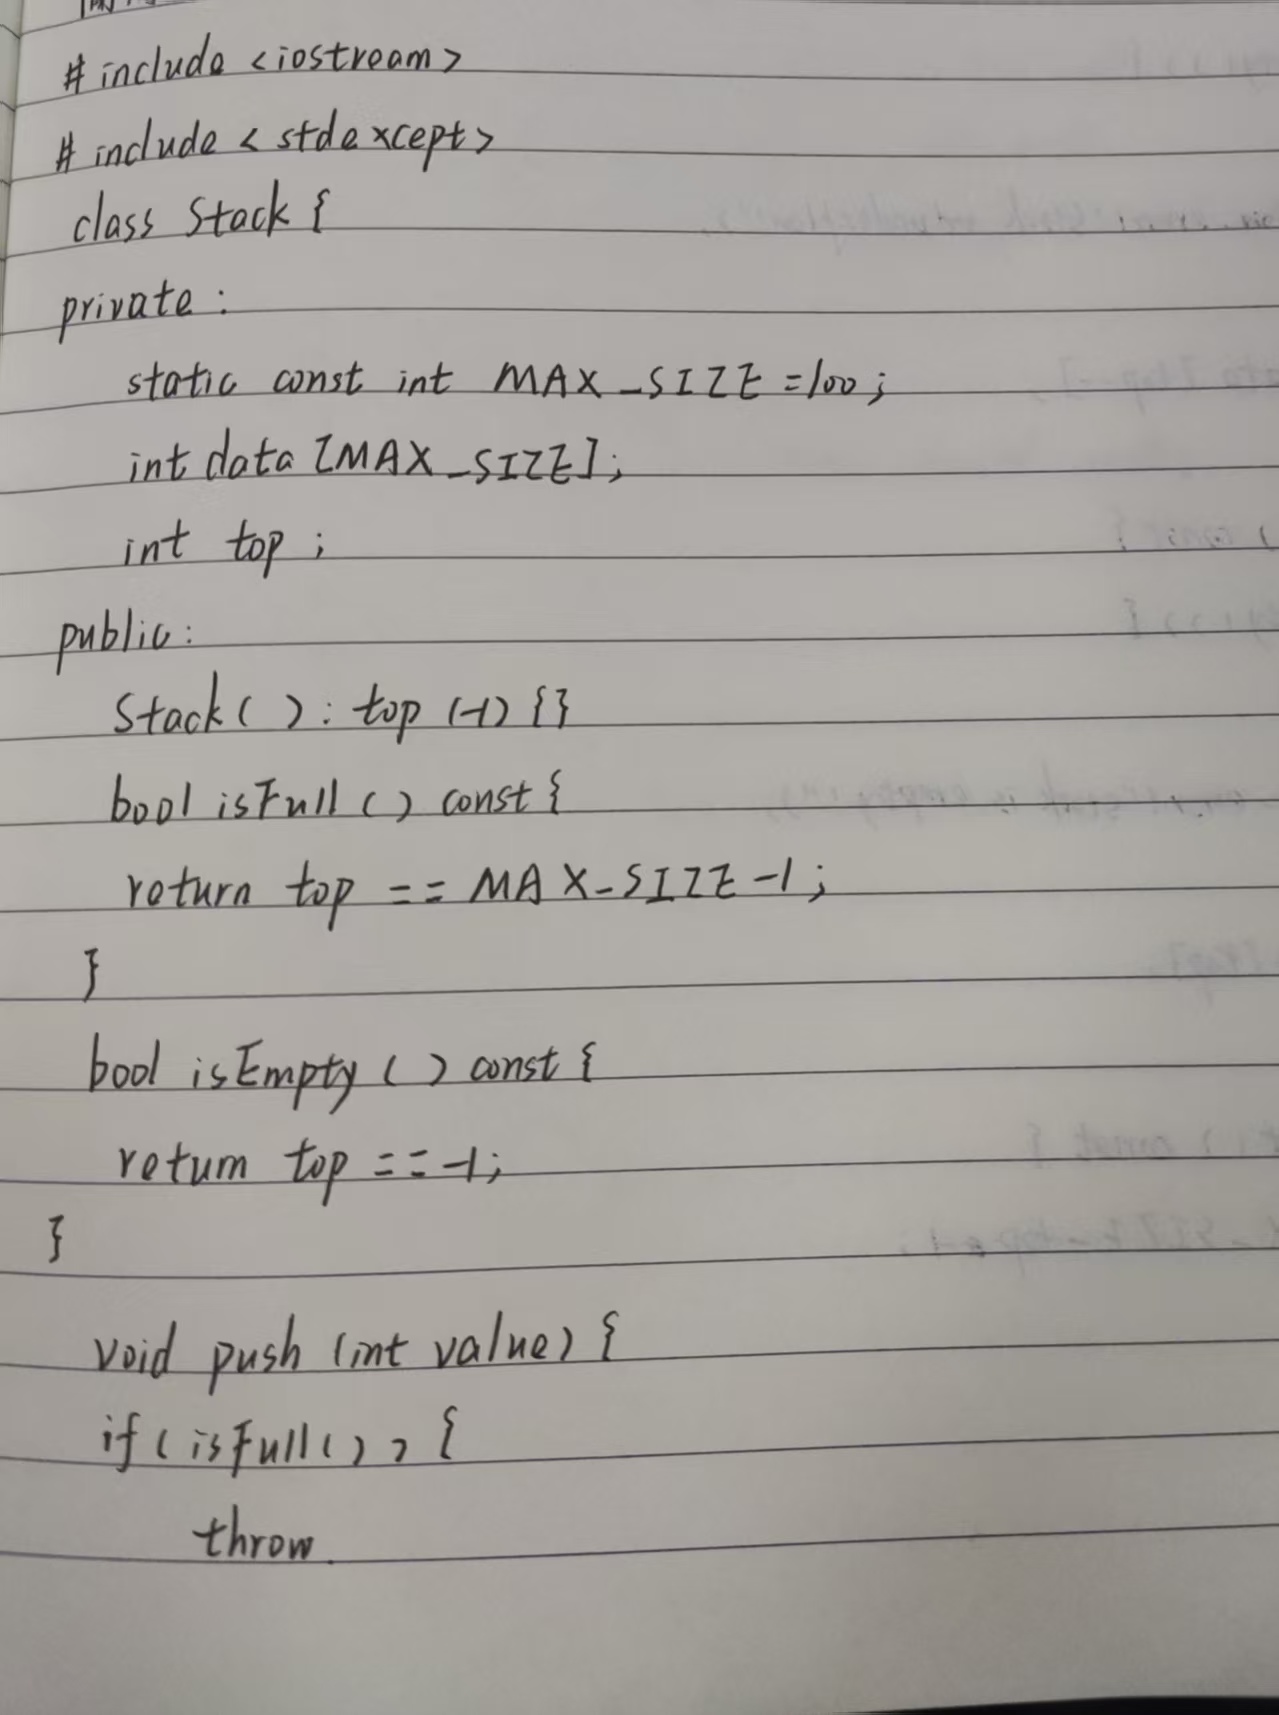 #include <iostream>
#include < stdexcept>
class Stack {
private :
static const int MAX_SIZE =100 ;
int data [MAX_SIZE] ;
int top ;
public :
Stack ( ) : top (-1) {}
bool isFull ( ) const {
return top == MAX_SIZE -1 ;
}
bool isEmpty ( ) const {
return top == -1 ;
}
void push (int value) {
if ( isFull ( ) ) {
throw